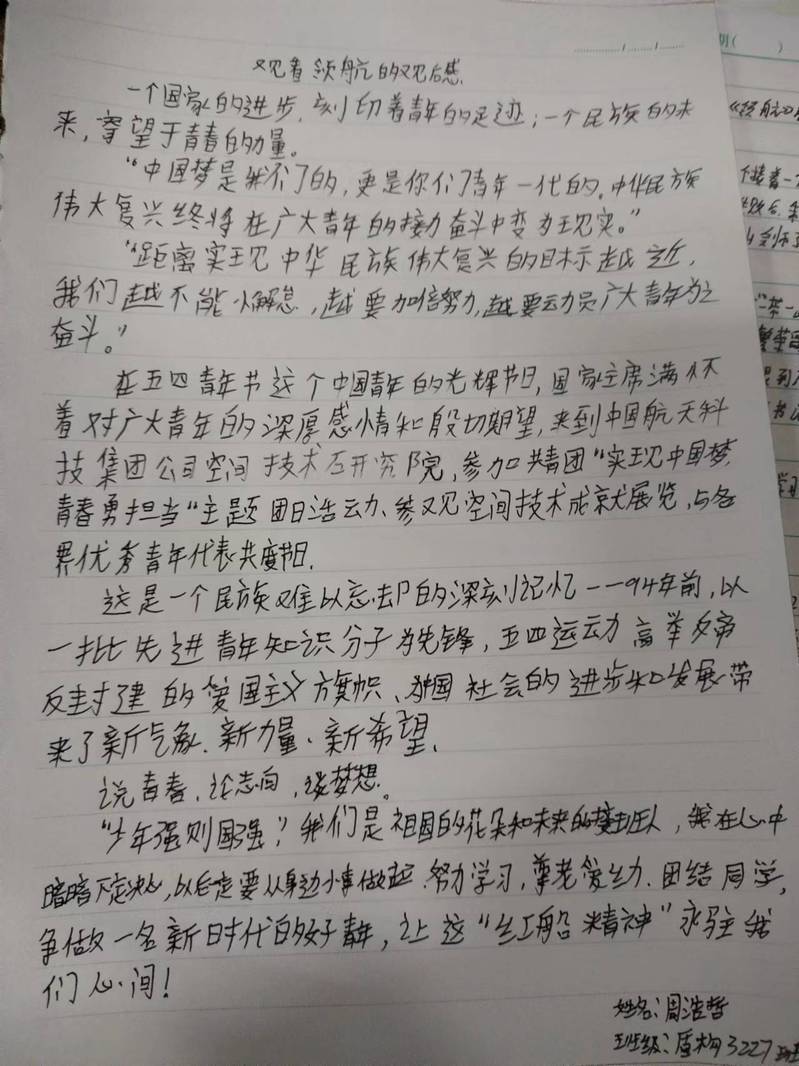 观看领航的观后感
一个国家的进步,刻印着青年的足迹;一个民族的未
来,寄望于青春的力量。
“中国梦是我们的,更是你们青年一代的。中华民族
伟大复兴终将在广大青年的接力奋斗中变为现实。”
“距离实现中华民族伟大复兴的目标越近,
我们越不能懈怠,越要加倍努力,越要动员广大青年为之
奋斗。”
在五四青年节这个中国青年的光辉节日,国家主席满怀
着对广大青年的深厚感情和殷切期望,来到中国航天科
技集团公司空间技术研究院,参加共青团“实现中国梦、
青春勇担当“主题团日活动、参观空间技术成就展览,与各
界优秀青年代表共度节日.
这是一个民族难以忘却的深刻记忆——94年前,以
一批先进青年知识分子为先锋,五四运动高举反帝
反封建的爱国主义旗帜、为中国社会的进步和发展带
来了新气象、新力量、新希望、
说青春,论志向,谈梦想。
“少年强则国强,”我们是祖国的花朵和未来的接班人,我在心中
暗暗下定决心,以后一定要从身边小事做起.努力学习,尊老爱幼.团结同学,
争做一名新时代的好青年,让这“红船精神”永驻我
们心间!
姓名:周浩哲
班级:盾构3227班